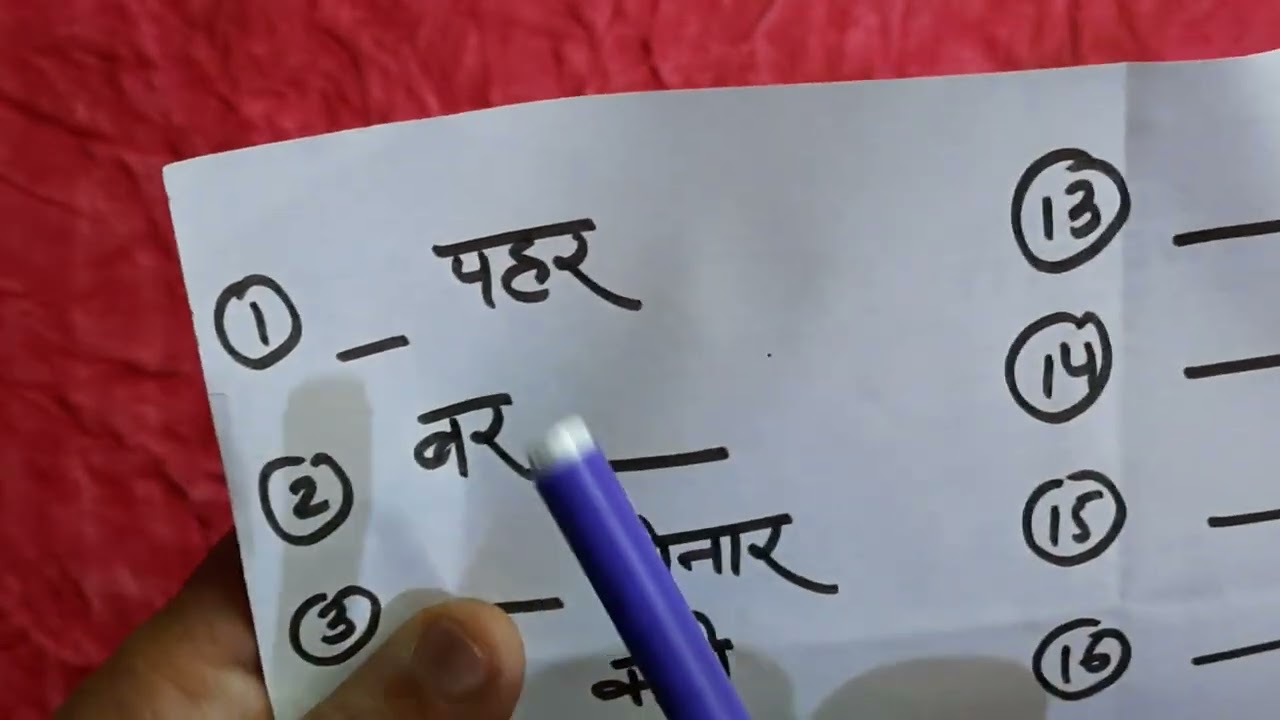 ① _ पहर
② बर _
③ _
⑬ _
⑭ _
⑮ _
⑯ _